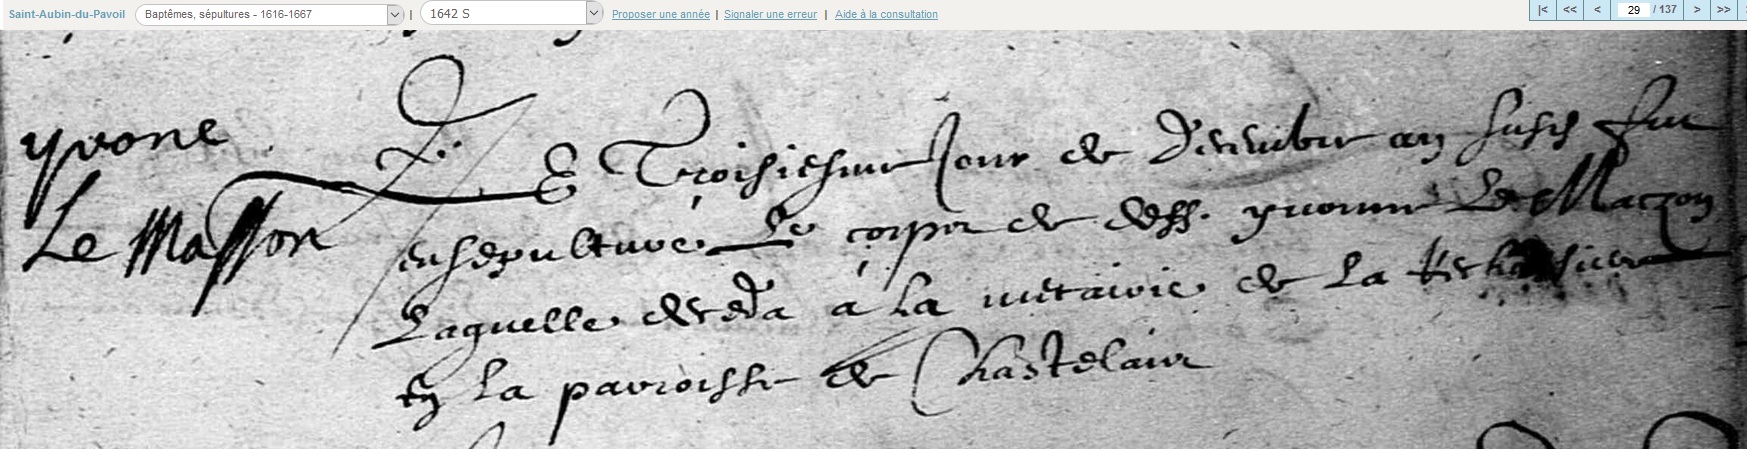 Saint-Aubin-du-Pavoil Baptêmes, sépultures - 1616-1667 | 1642 S Proposer une année | Signaler une erreur | Aide à la consultation |< << < 29 / 137 > >>
yvone
Le Masson
Le Troisiesme Jour de Decembre an susd fut
ensepulturé Le corps de deff. yvonne Le Maczon
Laquelle deceda a La metairie de La
en La parroisse de Chastelain